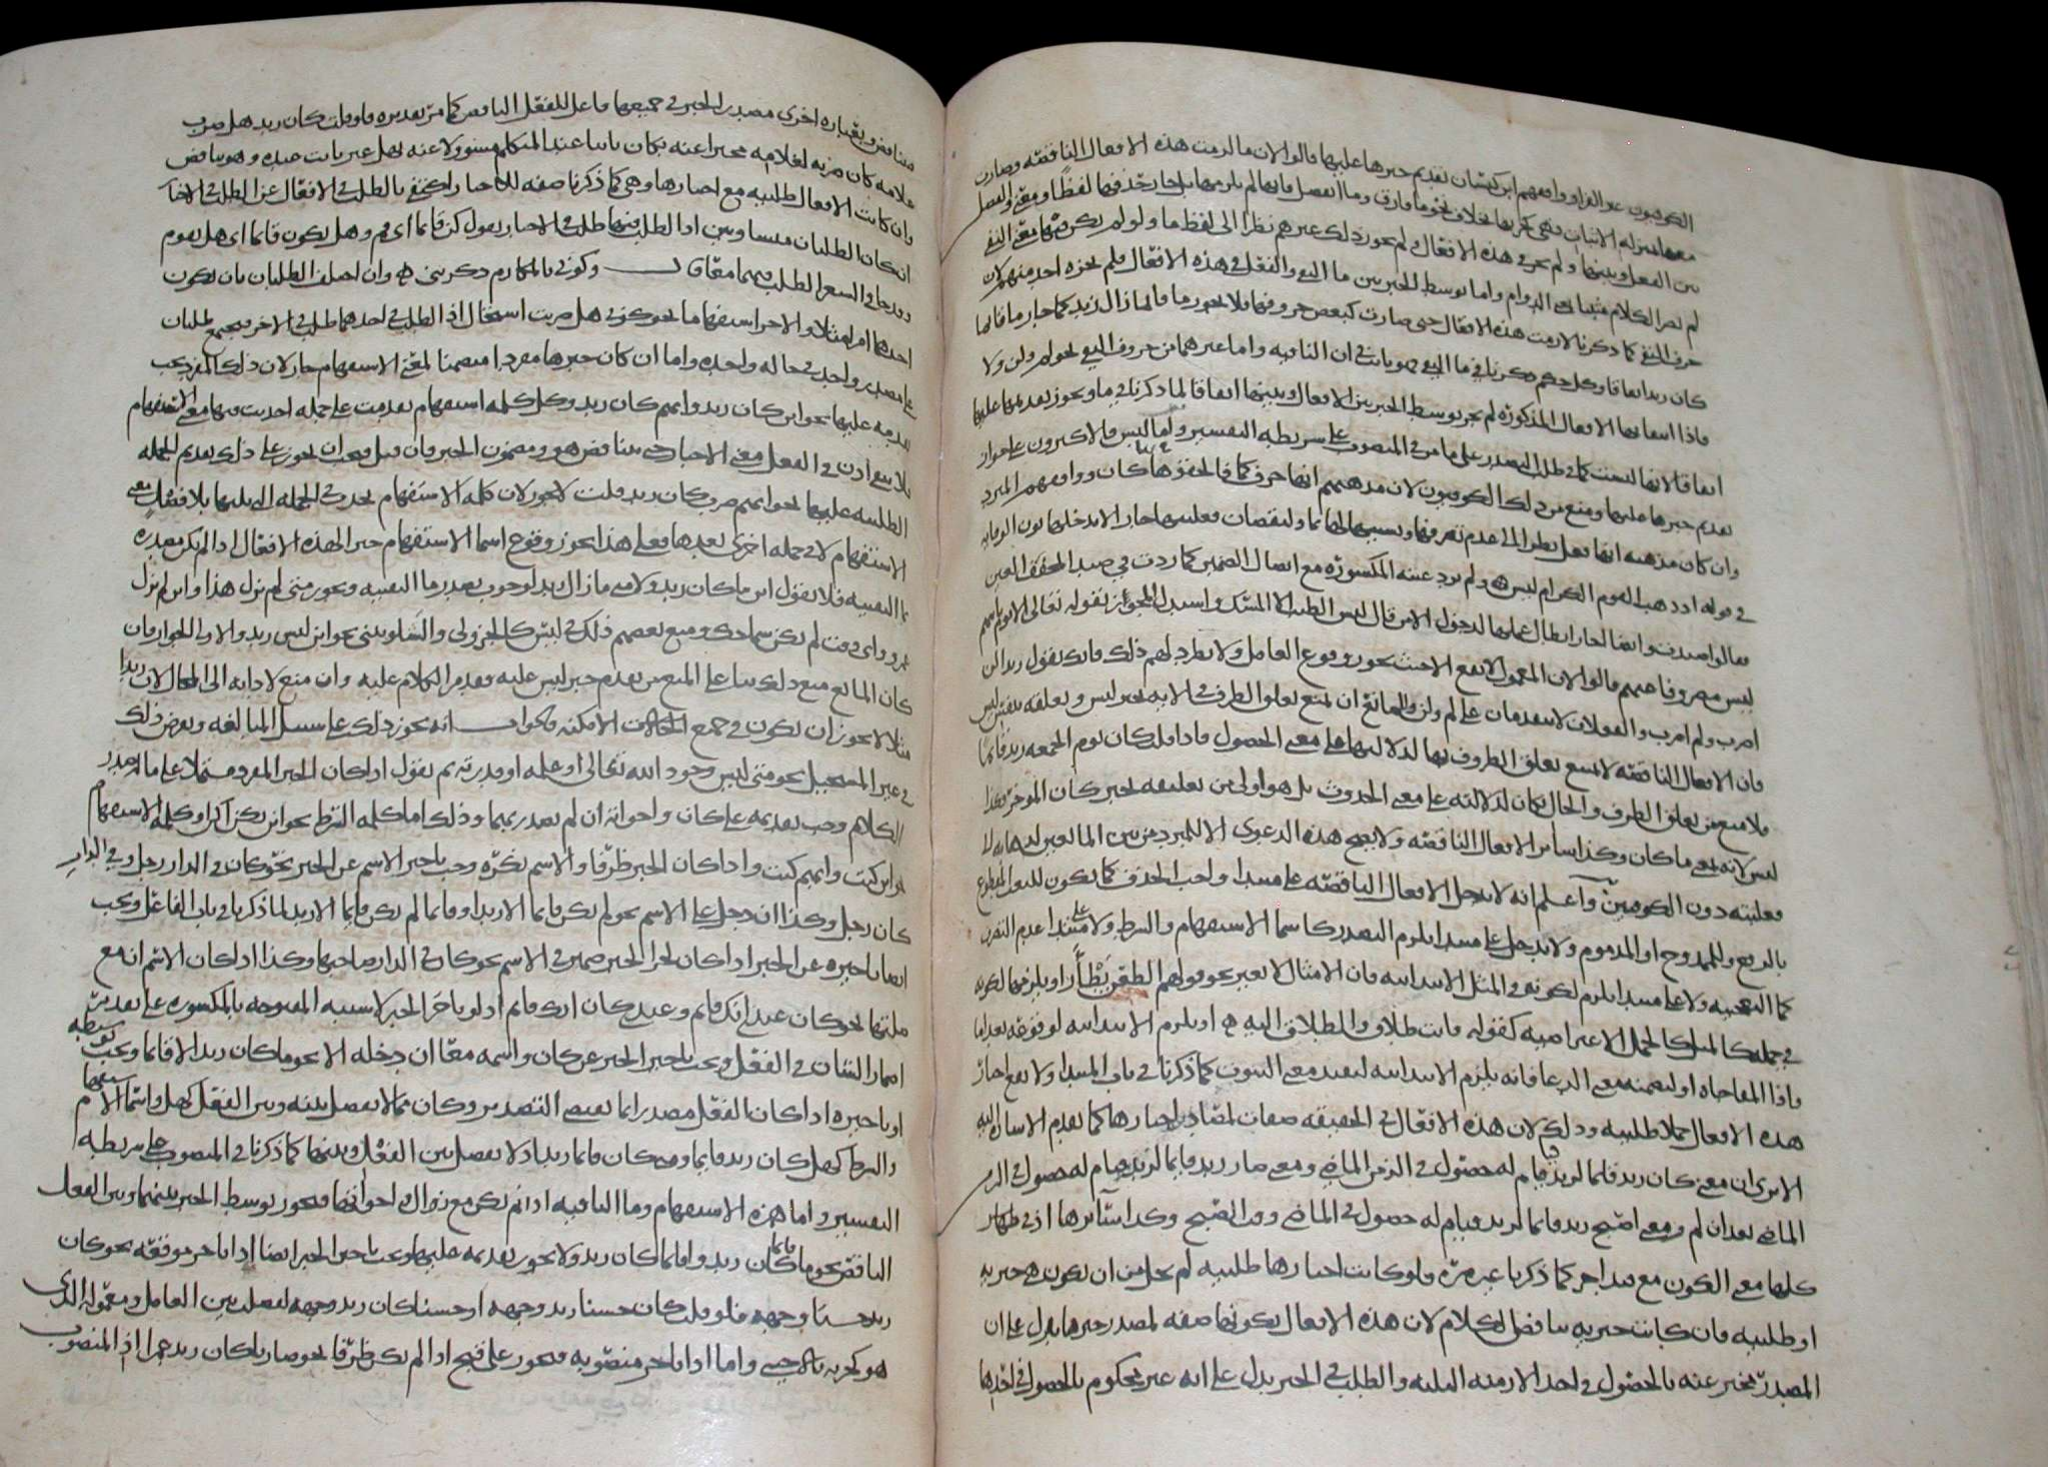 الكوفيون غير الفراء ووافقهم ابن كيسان تقديم خبرها عليها قالوا لان ما لزمت هذه الافعال الناقصة وصارت
معها بمنزلة الاثبات فهي كجزئها بخلاف نحو ما فارق وما انفصل فانها لم يلزمها بل جاز حذفها لفظا ومعنى والفصل
بين الفعل وبينها ولم يجز في هذه الافعال لم يجوز ذلك غيرهم نظرا الى لفظ ما ولو لم يكن فيها معنى النفي
لم يصر الكلام مثبتا بمعنى الدوام واما توسط الخبر بين ما النفي والفعل في هذه الافعال فلم يجزه احد منهم لان
حرف النفي كما ذكرنا لازمت هذه الافعال حتى صارت كبعض حروفها فلا يجوز ما قائما زال زيد كما جاز ما قائما
كان زيد اتفاقا وكل حكم ذكرناه في ما النفي فهو ثابت في ان النافية واما غيرهما من حروف النفي نحو لم ولن ولا
فاذا انتفى بها الافعال المذكورة لم يجز توسط الخبر بين الافعال وبينها اتفاقا لما ذكرنا في ما ويجوز تقديمها عليها
اتفاقا لانها ليست كما في طلب التصدر على ما مر في المنصوب على شريطة التفسير واما ليس فالاكثرون على جواز
تقديم خبرها عليها ومنع من ذلك الكوفيون لان مذهبهم انها حرف كما فالحقوها بها كان ووافقهم المبرد
وان كان مذهبه انها فعل نظرا الى عدم تصرفها ومشابهتها لما ولنقصان فعليتها جاز الا يدخلها نون الوقاية
في قوله اذ ذهب القوم الكرام ليسي ولم ترد عينه المكسورة مع اتصال الضمير كما ردت في صيد المخفف العين
فقالوا صيدت وايضا لجاز ابطال عملها لدخول الا من قال ليس الطيب الا المسك واستدل المجوز بقوله تعالى الا يوم ياتيهم
ليس مصروفا عنهم قالوا لان المعمول لا يقع الا حيث يجوز وقوع العامل ولا يطرد لهم ذلك فانك تقول زيدا لن
اضرب ولم اضرب والفعلان لا يتقدمان على لم ولن وللمانع ان يمنع تعلق الظرف في الاية بخبر ليس ويعلقه بنفس ليس
فان الافعال الناقصة لا يمتنع تعلق الظروف بها لدلالتها على معنى الحصول فاذا قلت كان يوم الجمعة زيد قائما
فلا منع من تعلق الظرف والحال بكان لدلالته على معنى الحدوث بل هو اولى من تعليقه بخبر كان المؤخر وكذا
ليس لانه بمعنى ما كان وكذا سائر الافعال الناقصة ولا يصح هذه الدعوى الا للمبرد من بين المانعين لذهابه الى
فعليته دون الكوفيين واعلم انه لا يدخل الافعال الناقصة على مبتدا واجب الحذف كما يكون للنعت المقطوع
بالرفع وللممدوح او المذموم ولا يدخل على مبتدا يلزم التصدر كاسما الاستفهام والشرط ولا على مبتدا عدم التصرف
كما التعجبية ولا على مبتدا يلزم لكونه في المثل الابتدائية فان الامثال لا تغير نحو قولهم الطعن يظأر او يلزمها لكونه
في جملة كالمثل كالجمل الاعتراضية كقوله فانت طلاق والطلاق الية او يلزم الابتدائية لوقوعه بعد اما
واذا المفاجاة او لتضمنه معنى الدعا فانه يلزم الابتدائية ليفيد معنى الثبوت كما ذكرنا في باب المبتدا ولا يقع اخبار
هذه الافعال جملا طلبية وذلك لان هذه الافعال في الحقيقة صفات لمصادر اخبارها كما تقدم الاشارة اليه
الا ترى ان معنى كان زيد قائما لزيد قيام له حصول في الزمن الماضي ومعنى صار زيد قائما لزيد قيام له حصول في الزمن
الماضي بعد ان لم ومعنى اصبح زيد قائما لزيد قيام له حصول في الماضي وقت الصبح وكذا سائرها اذ في
كلها معنى الكون مع قيد اخر كما ذكرنا غير مرة فلو كانت اخبارها طلبية لم يخل من ان يكون هي خبرية
او طلبية فان كانت خبرية تناقض الكلام لان هذه الافعال لكونها صفة لمصدر خبرها يدل على ان
المصدر مخبر عنه بالحصول في احد الازمنة الثلثة والطلب في الخبر يدل على انه غير محكوم بالحصول في احدها
متناقض وبعبارة اخرى مصدر الخبر في جميعها فاعل للفعل الناقص كما مر تقديره فلو قلت كان زيد هل ضرب
غلامه كان ضربه لغلامه مخبرا عنه بكان ثابتا عند المتكلم مسؤولا عنه بهل غير ثابت عنده وهو تناقض
وان كانت الافعال طلبية مع اخبارها وهي كما ذكرنا صفة للاخبار اكتفي بالطلب في الافعال عن الطلب في الاخبار
ان كان الطلبان متساويين اذ الطلب فيها طلب في الاخبار تقول كن قائما اي قم وهل يكون قائما اي هل يقوم
وقد جا في الشعر الطلب فيهما معا قال وكوني بالمكارم ذكريني وان اختلف الطلبان بان يكون
احدهما امرا مثلا والاخر استفهاما نحو كوني هل ضربت استحال اذ الطلب في احدهما طلب في الاخر فيجتمع طلبان
على مصدر واحد في حالة واحدة واما ان كان خبرها مفردا متضمنا لمعنى الاستفهام جاز لان ذلك المفرد يجب
تقدمه عليها نحو اين كان زيد وايهم كان زيد وكل كلمة استفهام تقدمت على جملة احدثت فيها معنى الاستفهام
فلا يبقى اذن في الفعل معنى الاخبار حتى يتناقض هو ومضمون الخبر فان قيل فيجب ان يجوز على ذلك تقديم الجملة
الطلبية عليها نحو ايهم ضرب كان زيد قلت لا يجوز لان كلمة الاستفهام تحدث في الجملة التي يليها بلا فصل معنى
الاستفهام لا في جملة اخرى بعدها فعلى هذا يجوز وقوع اسما الاستفهام خبرا لهذه الافعال اذا لم يكن مصدرة
بما النافية فلا تقول اين ما كان زيد ولا متى ما زال زيد لوجوب تصدر ما النافية ويجوز متى لم يزل هذا واين لم يزل
عمرو واي وقت لم تكن سماحك ومنع بعضهم ذلك في ليس كالجزولي والشلوبيني نحو اين ليس زيد والاولى الجواز فان
كان المانع منع ذلك بنا على المنع من تقدم خبر ليس عليه فقد مر الكلام عليه وان منع لادائه الى المحال لان زيدا
مثلا لا يجوز ان يكون في جميع الامكنة فالجواب انه يجوز ذلك على سبيل المبالغة ونفرض ذلك
في غير المستحيل نحو متى ليس وجود الله تعالى او علمه او قدرته ثم نقول اذا كان الخبر المفرد مشتملا على ما له صدر
الكلام وجب تقديمه على كان واخواته ان لم تصدر بما وذلك اما كلمة الشرط نحو اين تكن اكن او كلمة الاستفهام
نحو اين كنت وايهم كنت واذا كان الخبر ظرفا والاسم نكرة وجب تاخير الاسم عن الخبر نحو كان في الدار رجل وفي الدار
كان رجل وكذا ان دخل على الاسم نحو لم يكن قائما الا زيد او قائما لم يكن قائما الا زيد لما ذكرنا في باب الفاعل ويجب
ايضا تاخيره عن الخبر اذا كان لجزا الخبر ضمير في الاسم نحو كان في الدار صاحبها وكذا اذا كان الاسم ان مع
صلتها نحو كان عندي انك قائم وعندي كان انك قائم اذ لو تاخر الخبر لاشتبه المفتوحة بالمكسورة على تقدير
اضمار الشان في الفعل ويجب تاخير الخبر عن كان واسمه معا ان دخله الا نحو ما كان زيد الا قائما ويجب توسطه
او تاخيره اذا كان الفعل مصدرا بما يقتضي التصدر وكان مما لا يفصل بينه وبين الفعل كهل واسما الاستفهام
والشرط كهل كان زيد قائما ومتى كان قائما زيد اذ لا يفصل بين الفعل وبينها كما ذكرنا في المنصوب على شريطة
التفسير واما همزة الاستفهام وما النافية اذا لم تكن مع زال واخواتها فيجوز توسط الخبر بينهما وبين الفعل
الناقص نحو ما قائما كان زيد واقائما كان زيد ولا يجوز تقديمه عليهما ويجب تاخير الخبر ايضا اذا تاخر مرفوعه نحو كان
زيد حسنا وجهه فلو قلت كان حسنا زيد وجهه او حسنا كان زيد وجهه لفصلت بين العامل ومعموله الذي
هو كجزئه بالاجنبي واما اذا تاخر منصوبه فيجوز على قبح اذا لم يكن ظرفا نحو ضاربا كان زيد عمرا اذ المنصوب